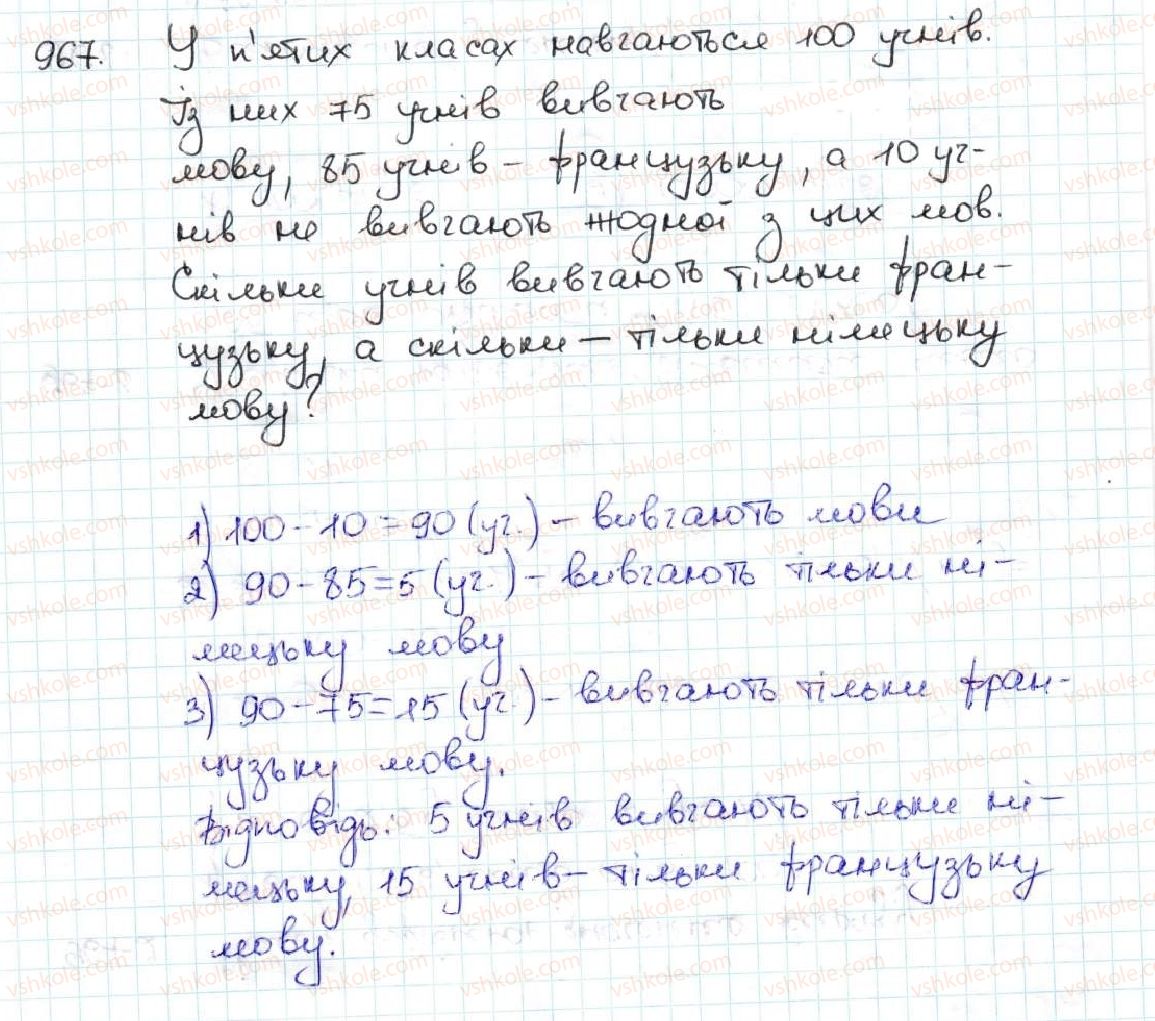 967. У п'ятих класах навчаються 100 учнів.
Із них 75 учнів вивчають
мову, 85 учнів – французьку, а 10 уч-
нів не вивчають жодної з цих мов.
Скільки учнів вивчають тільки фран-
цузьку, а скільки – тільки німецьку
мову?
1) 100 - 10 = 90 (уч.) – вивчають мови
2) 90 - 85 = 5 (уч.) – вивчають тільки ні-
мецьку мову
3) 90 - 75 = 15 (уч.) – вивчають тільки фран-
цузьку мову.
Відповідь: 5 учнів вивчають тільки ні-
мецьку, 15 учнів – тільки французьку
мову.